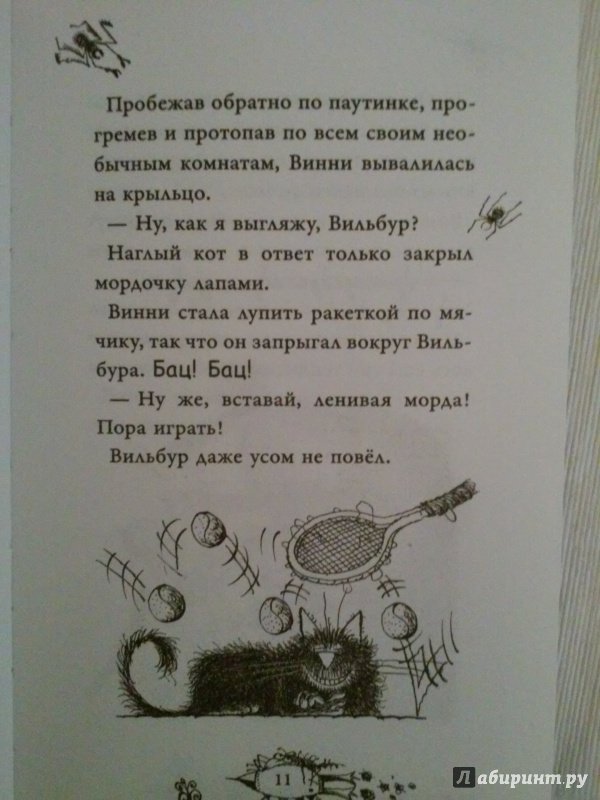 Пробежав обратно по паутинке, про-
гремев и протопав по всем своим нео-
бычным комнатам, Винни вывалилась
на крыльцо.
— Ну, как я выгляжу, Вильбур?
Наглый кот в ответ только закрыл
мордочку лапами.
Винни стала лупить ракеткой по мя-
чику, так что он запрыгал вокруг Виль-
бура. Бац! Бац!
— Ну же, вставай, ленивая морда!
Пора играть!
Вильбур даже усом не повёл.
11
Лабиринт.ру